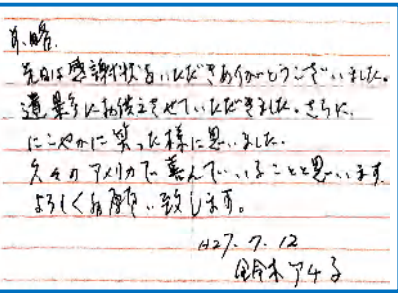 前略
先日は感謝状をいただきありがとうございました。
遺影にお供えさせていただきました。さらに、
にこやかに笑った様に思いました。
久々のアメリカで喜んでいることと思います。
よろしくお願い致します。
H27.7.12
鈴木アキ子